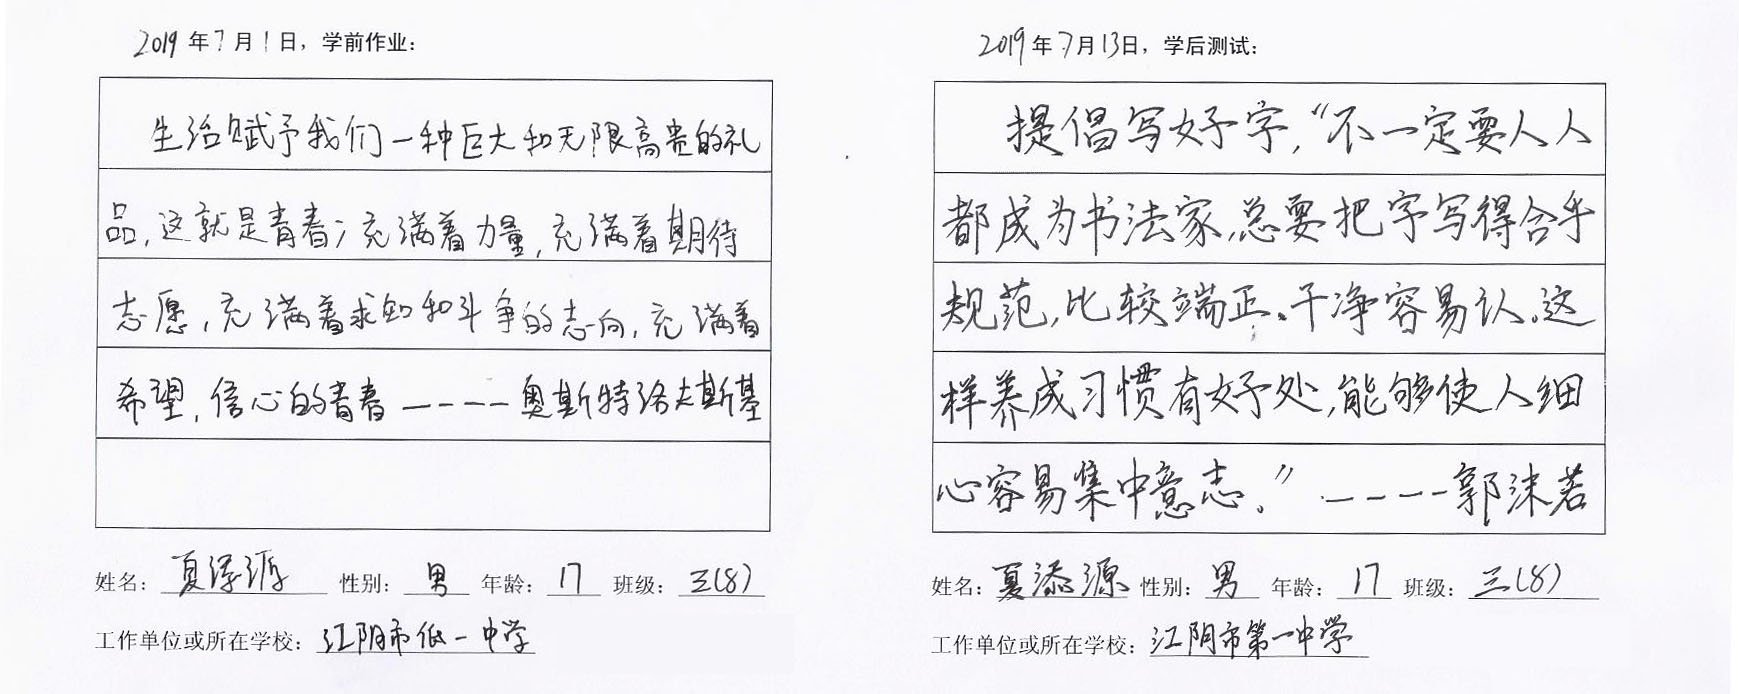 2019年7月1日，学前作业：
生活赋予我们一种巨大和无限高贵的礼
品，这就是青春；充满着力量，充满着期待
志愿，充满着求知和斗争的志向，充满着
希望，信心的青春————奥斯特洛夫斯基
姓名：夏添源 性别：男 年龄：17 班级：三(8)
工作单位或所在学校：江阴市第一中学
2019年7月13日，学后测试：
提倡写好字，“不一定要人人
都成为书法家，总要把字写得合乎
规范，比较端正、干净容易认。这
样养成习惯有好处，能够使人细
心容易集中意志。”————郭沫若
姓名：夏添源 性别：男 年龄：17 班级：三(8)
工作单位或所在学校：江阴市第一中学